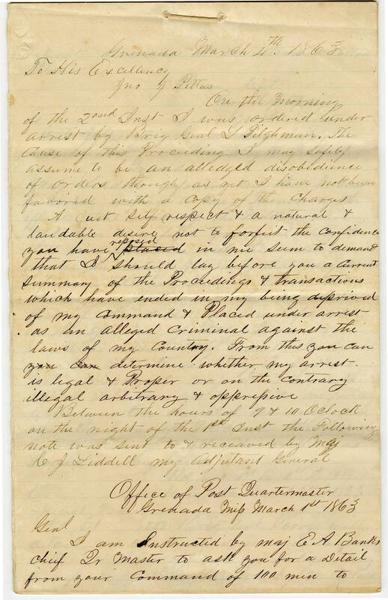 Grenada March 4th 1863
To His Excellency
Jno J Pettus
On the Morning
of the 2nd Inst I was ordered under
arrest by Brig Genl L Tilghman. The
Cause of this Proceeding I may safely
assume to be an alledged disobedience
of orders though as yet I have not been
favored with a Copy of the Charges
A just self respect & a natural &
laudable desire not to forfeit the Confidence
you have placed reposed in me seem to demand
that I should lay before you a
summary of the Proceedings & transactions
which have ended in my being deprived
of my Command & Placed under arrest
as an alleged Criminal against the
laws of my Country. From this you can
you can determine whether my arrest
is legal & Proper or on the Contrary
illegal arbitrary & oppressive
Between the hours of 9 & 10 Oclock
on the night of the 1st Inst the Following
note was sent to & received by Maj
J Liddell my Adjutant General
Office of Post Quartermaster
Grenada Miss March 1st 1863
Genl
I am Instructed by Maj E A Banks
chief Qr Master to ask you for a Detail
from your Command of 100 men to